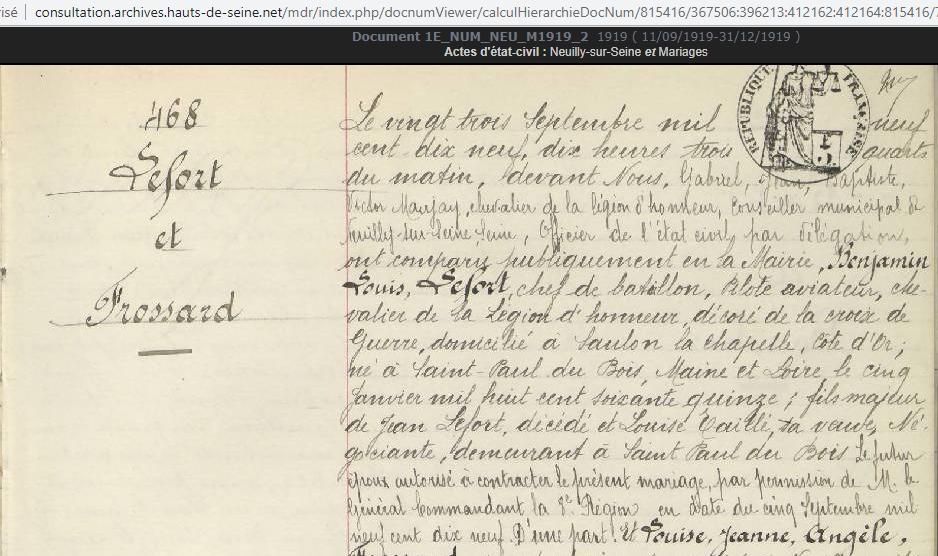 risé | consultation.archives.hauts-de-seine.net/mdr/index.php/docnumViewer/calculHierarchieDocNum/815416/367506:396213:412162:412164:815416/7
Document 1E_NUM_NEU_M1919_2 1919 ( 11/09/1919-31/12/1919 )
Actes d'état-civil : Neuilly-sur-Seine et Mariages
468
Lefort
et
Frossard
REPUBLIQUE FRANÇAISE
Le vingt trois Septembre mil neuf
cent dix neuf, dix heures trois quarts
du matin, devant Nous, Gabriel, Jean, Baptiste,
Victor chevalier de la légion d'honneur, Conseiller municipal de
Neuilly-sur-Seine, Seine, Officier de l'état civil par délégation,
ont comparu publiquement en la Mairie, Benjamin
Louis, Lefort, chef de bataillon, Pilote aviateur, che-
valier de la Légion d'honneur, décoré de la croix de
Guerre, domicilié à Saulon la chapelle, Côte d'Or,
né à Saint-Paul du Bois, Maine et Loire le cinq
Janvier mil huit cent soixante quinze ; fils majeur
de Jean Lefort, décédé et Louise Taillé, sa veuve, Né-
gociante, demeurant à Saint Paul du Bois Le futur
époux autorisé à contracter le présent mariage, par permission de M. le
Général Commandant la 8e Région en date du cinq Septembre mil
neuf cent dix neuf. D'une part. Et Louise, Jeanne, Angèle,